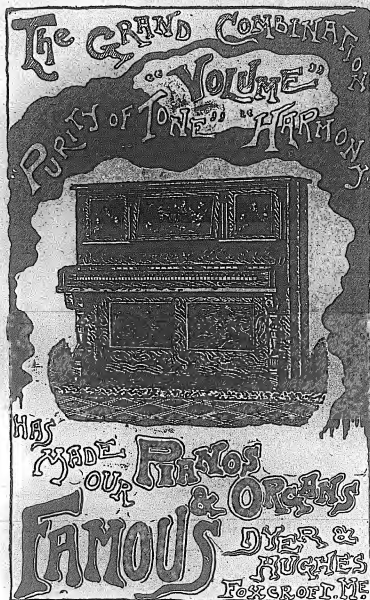 The GRAND COMBINATION
"VOLUME"
"PURITY OF TONE" "HARMONY"
HAS MADE OUR PIANOS
& ORGANS
FAMOUS
DYER &
HUGHES
FOXCROFT, ME.